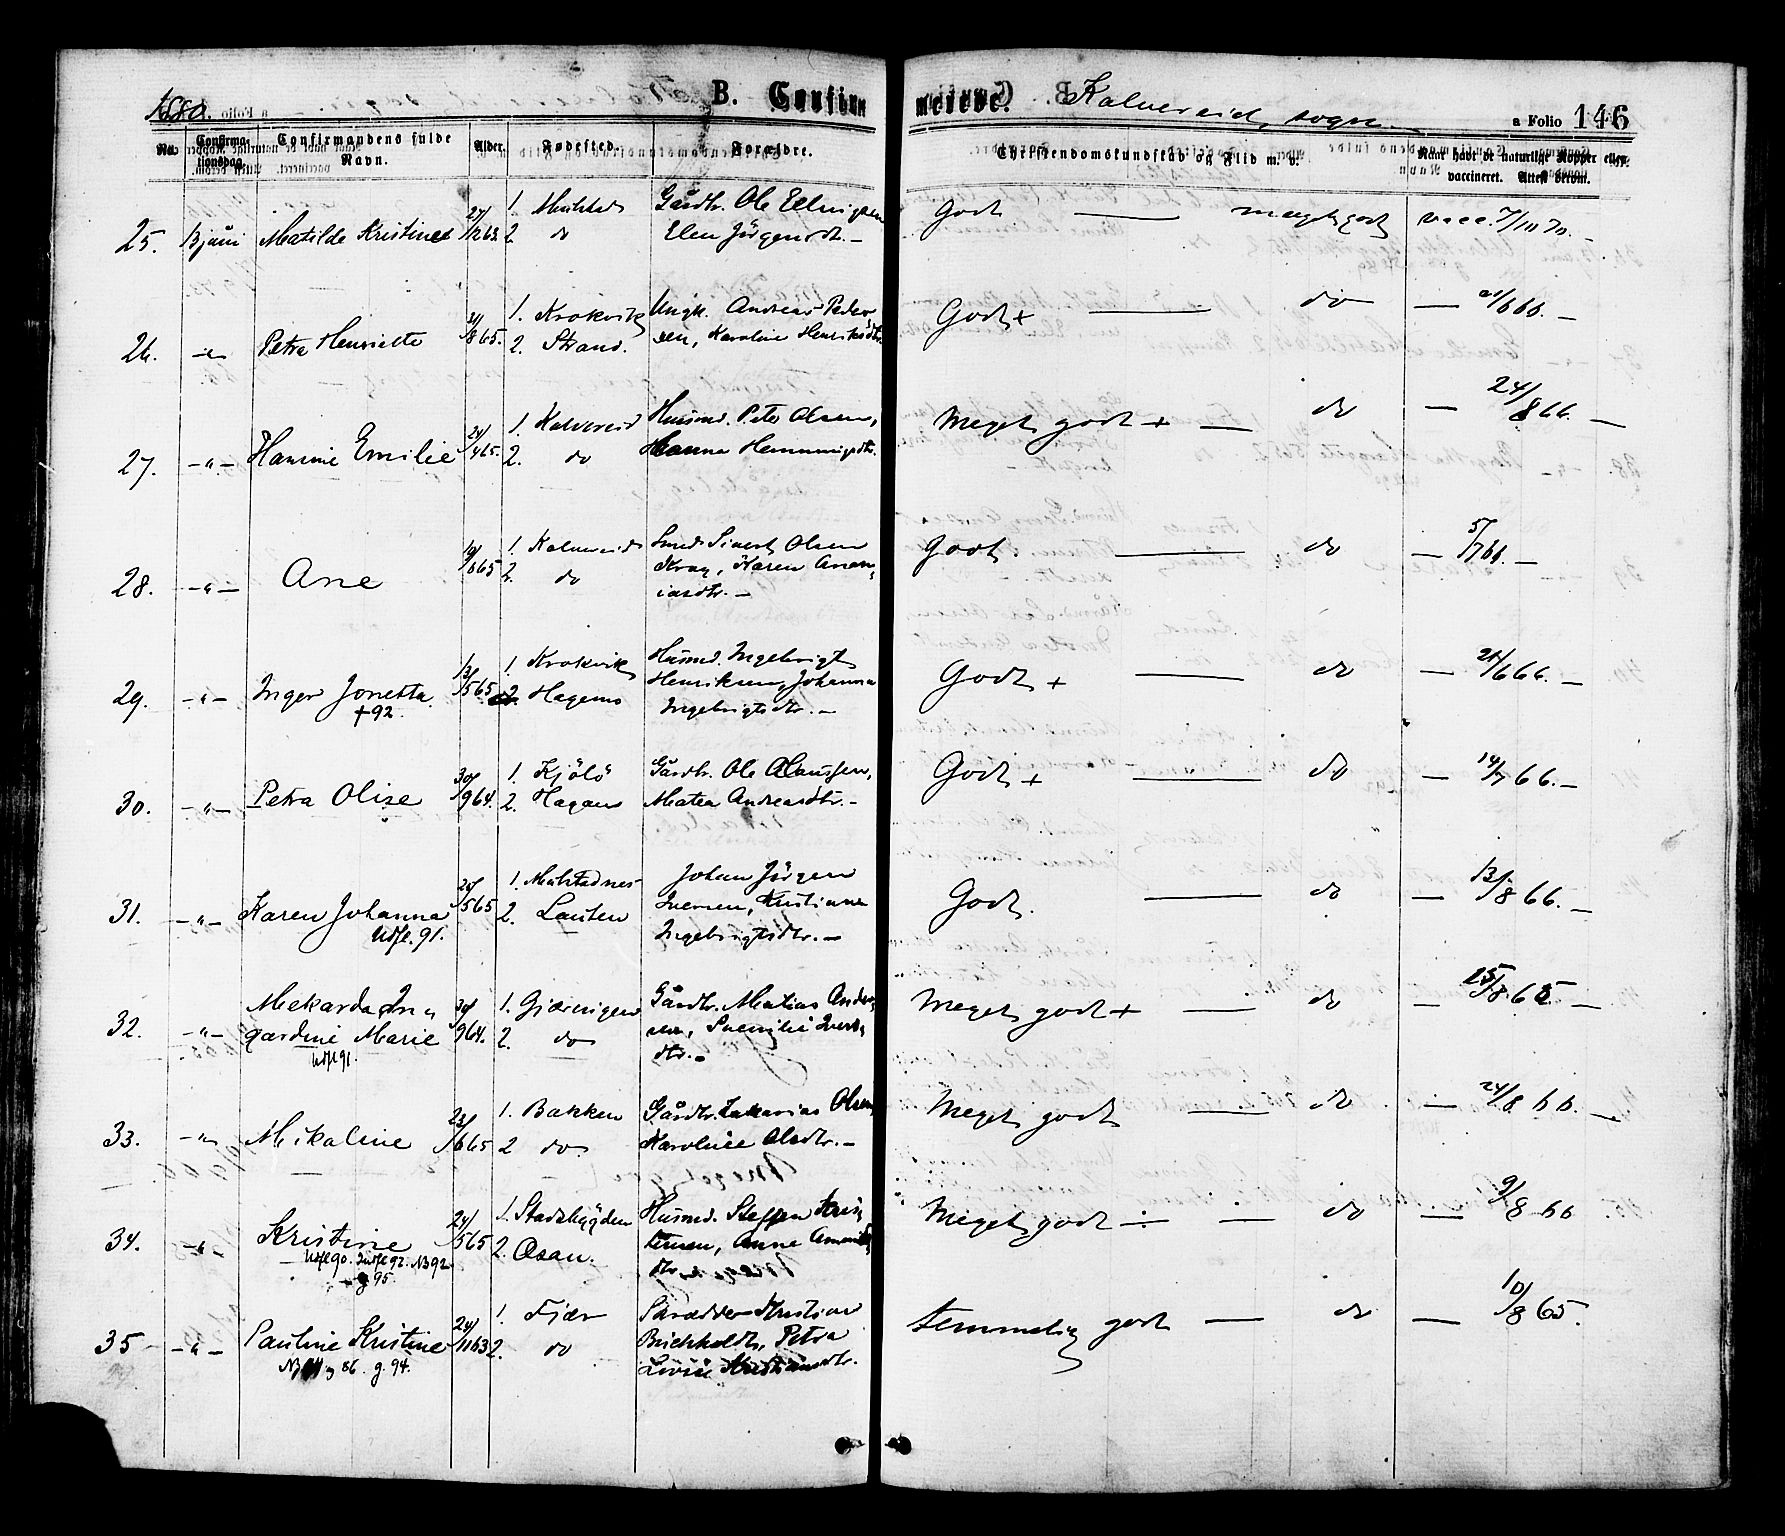 1880.
B. Confirmerede.
Kalvereid sogn.
a Folio 146
No. Confirmationsdag. Confirmandens fulde Navn. Alder. Fødested. Forældre. Christendomskundskab og Flid m. v. Naar havt de naturlige Kopper eller vaccineret. Attest derom.
25. 13 juni Matilde Kristine 27/12 63. 1. 2. do Gårdbr. Ole Ellingsen
Elen Jörgensdt. –
Godt — meget godt vacc. 7/10 70. –
26. –"– Petra Henriette 21/8 65. 1. Krokvik 2. Strand. Ungk. Andreas Peder-
sen, Karoline Henriksdtr.
Godt + — do — 21/6 66. –
27. –"– Hansine Emilie 24/4 65. 1. Kalvereid 2. do Husmd. Peter Olsen,
Hanna Hemmingsdtr.
Meget godt + — do — 24/8 66. –
28. –"– Ane 19/6 65 1. Kalvereid 2. do Smed Sivert Olsen
Krog, Karen Anan-
iasdtr. –
Godt. — do — 5/7 66. –
29. –"– Inger Jonetta 13/5 65 1. Krokvik 2. Hagens Husmd. Ingebrigt
+92.
Henriksen, Johanna
Ingebrigtsdtr. –
Godt + — do — 21/6 66. –
30. –"– Petra Olise 30/9 64. 1. Kjölö 2. Hagans Gårdbr. Ole Olaussen,
Matea Andreasdtr. –
Godt + — do — 14/7 66. –
31. –"– Karen Johanna 20/5 65 1. 2. Lauten Johan Jörgen
Udfl. 91.
Iversen, Kristiane
Ingebrigtsdtr. –
Godt. — do — 13/8 66. –
32. –"– Mekarda In-
gardine Marie 30/9 64. 1. Gjæringen 2. do Gårdbr. Matias Ander-
Udfl 91.
sen, Ivers-
dtr. –
Meget godt + — do — 25/8 65 –
33. –"– Mikaline 23/6 65 1. Bakken 2 do. Gårdbr. Zakarias Olsen,
Karoline Olsdtr. –
Meget godt — do — 24/8 66. –
34. –"– Kristine 24/5 65 1. Stadsbygden 2. Husmd. Steffen Kris-
Udfl 90. Indfl 92. N3 92.
g 95.
tensen, Anne
dtr.
Meget godt – — do — 9/8 66
35 –"– Pauline Kristine 24/11 63 1. Fjær 2. do Skrædder Kristian
g. 94.
Buchholdt, Petra
Lovise Kristiansdtr.
Temmelig godt — do — 10/8 65.